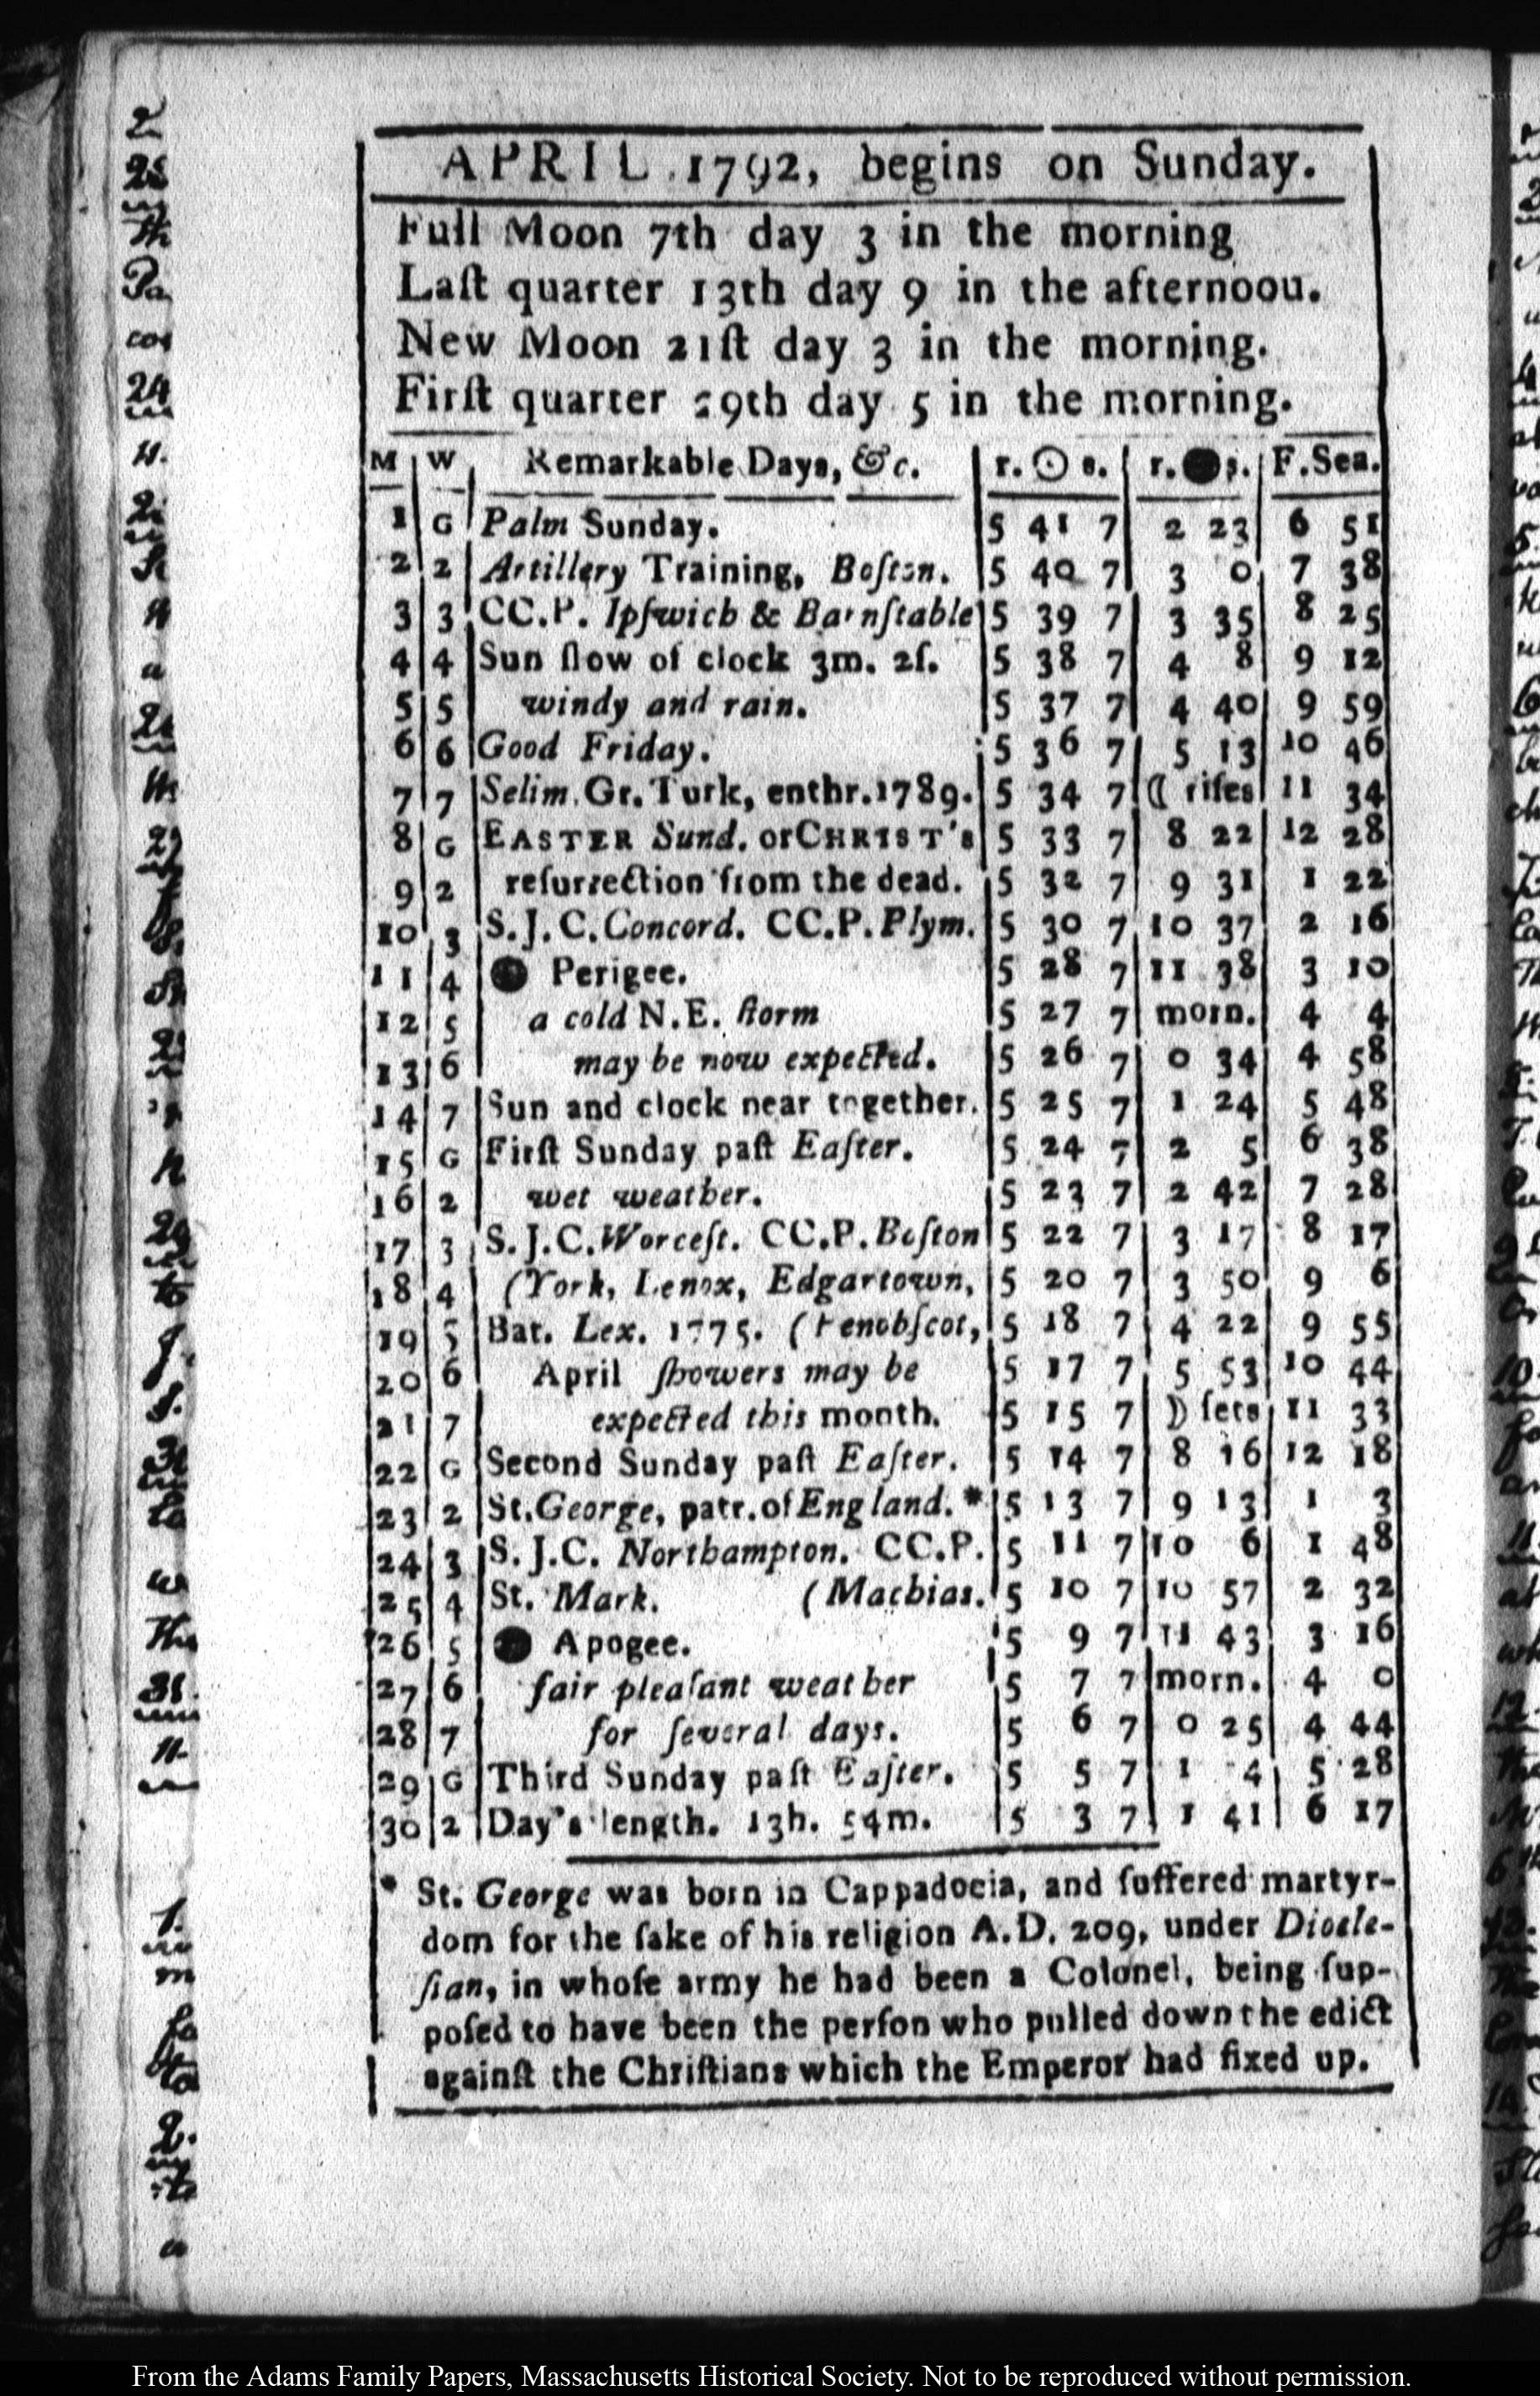 APRIL 1792, begins on Sunday.
Full Moon 7th day 3 in the morning
Laſt quarter 13th day 9 in the afternoou.
New Moon 21ſt day 3 in the morning.
Firſt quarter 29th day 5 in the morning.
M W Remarkable Days, &c. r. ☉ s. r. ● s. F. Sea.
1 G Palm Sunday. 5 41 7 2 23 6 51
2 2 Artillery Training, Boſton. 5 40 7 3 0 7 38
3 3 CC.P. Ipſwich & Barnſtable 5 39 7 3 35 8 25
4 4 Sun ſlow of clock 3m. 2ſ. 5 38 7 4 8 9 12
5 5 windy and rain. 5 37 7 4 40 9 59
6 6 Good Friday. 5 36 7 5 13 10 46
7 7 Selim. Gr. Turk, enthr. 1789. 5 34 7 ☾ riſes 11 34
8 G EASTER Sund. or CHRIST's 5 33 7 8 22 12 28
9 2 reſurrection from the dead. 5 32 7 9 31 1 22
10 3 S.J.C. Concord. CC.P. Plym. 5 30 7 10 37 2 16
11 4 ● Perigee. 5 28 7 11 38 3 10
12 5 a cold N.E. ſtorm 5 27 7 morn. 4 4
13 6 may be now expected. 5 26 7 0 34 4 58
14 7 Sun and clock near together. 5 25 7 1 24 5 48
15 G Firſt Sunday paſt Eaſter. 5 24 7 2 5 6 38
16 2 wet weather. 5 23 7 2 42 7 28
17 3 S.J.C. Worceſt. CC.P. Boſton 5 22 7 3 17 8 17
18 4 (York, Lenox, Edgartown, 5 20 7 3 50 9 6
19 5 Bat. Lex. 1775. (Penobſcot, 5 18 7 4 22 9 55
20 6 April ſhowers may be 5 17 7 5 53 10 44
21 7 expected this month. 5 15 7 ☽ ſets 11 33
22 G Second Sunday paſt Eaſter. 5 14 7 8 16 12 18
23 2 St. George, patr. of England. * 5 13 7 9 13 1 3
24 3 S.J.C. Northampton. CC.P. 5 11 7 10 6 1 48
25 4 St. Mark. (Machias. 5 10 7 10 57 2 32
26 5 ● Apogee. 5 9 7 11 43 3 16
27 6 fair pleaſant weather 5 7 7 morn. 4 0
28 7 for ſeveral days. 5 6 7 0 25 4 44
29 G Third Sunday paſt Eaſter. 5 5 7 1 4 5 28
30 2 Day's length. 13h. 54m. 5 3 7 1 41 6 17
* St. George was born in Cappadocia, and ſuffered martyr-
dom for the ſake of his religion A.D. 209, under Diocle-
ſian, in whoſe army he had been a Colonel, being ſup-
poſed to have been the perſon who pulled down the edict
againſt the Chriſtians which the Emperor had fixed up.
From the Adams Family Papers, Massachusetts Historical Society. Not to be reproduced without permission.